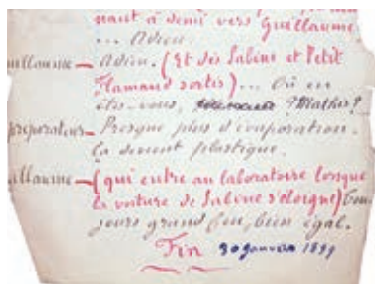 nant à demi vers Guillaume.
... Adieu.
uillaume — Adieu. (Et dès Sabine et Petit
Flamand sortis)... Où en
êtes-vous, ? Mathis?
préparateur — Presque plus d'évaporation.
Ça devient plastique.
uillaume — (qui entre au laboratoire lorsque
la voiture de Sabine s'éloigne) Tou
jours grand feu, bien égal.
Fin 30 janvier 1899